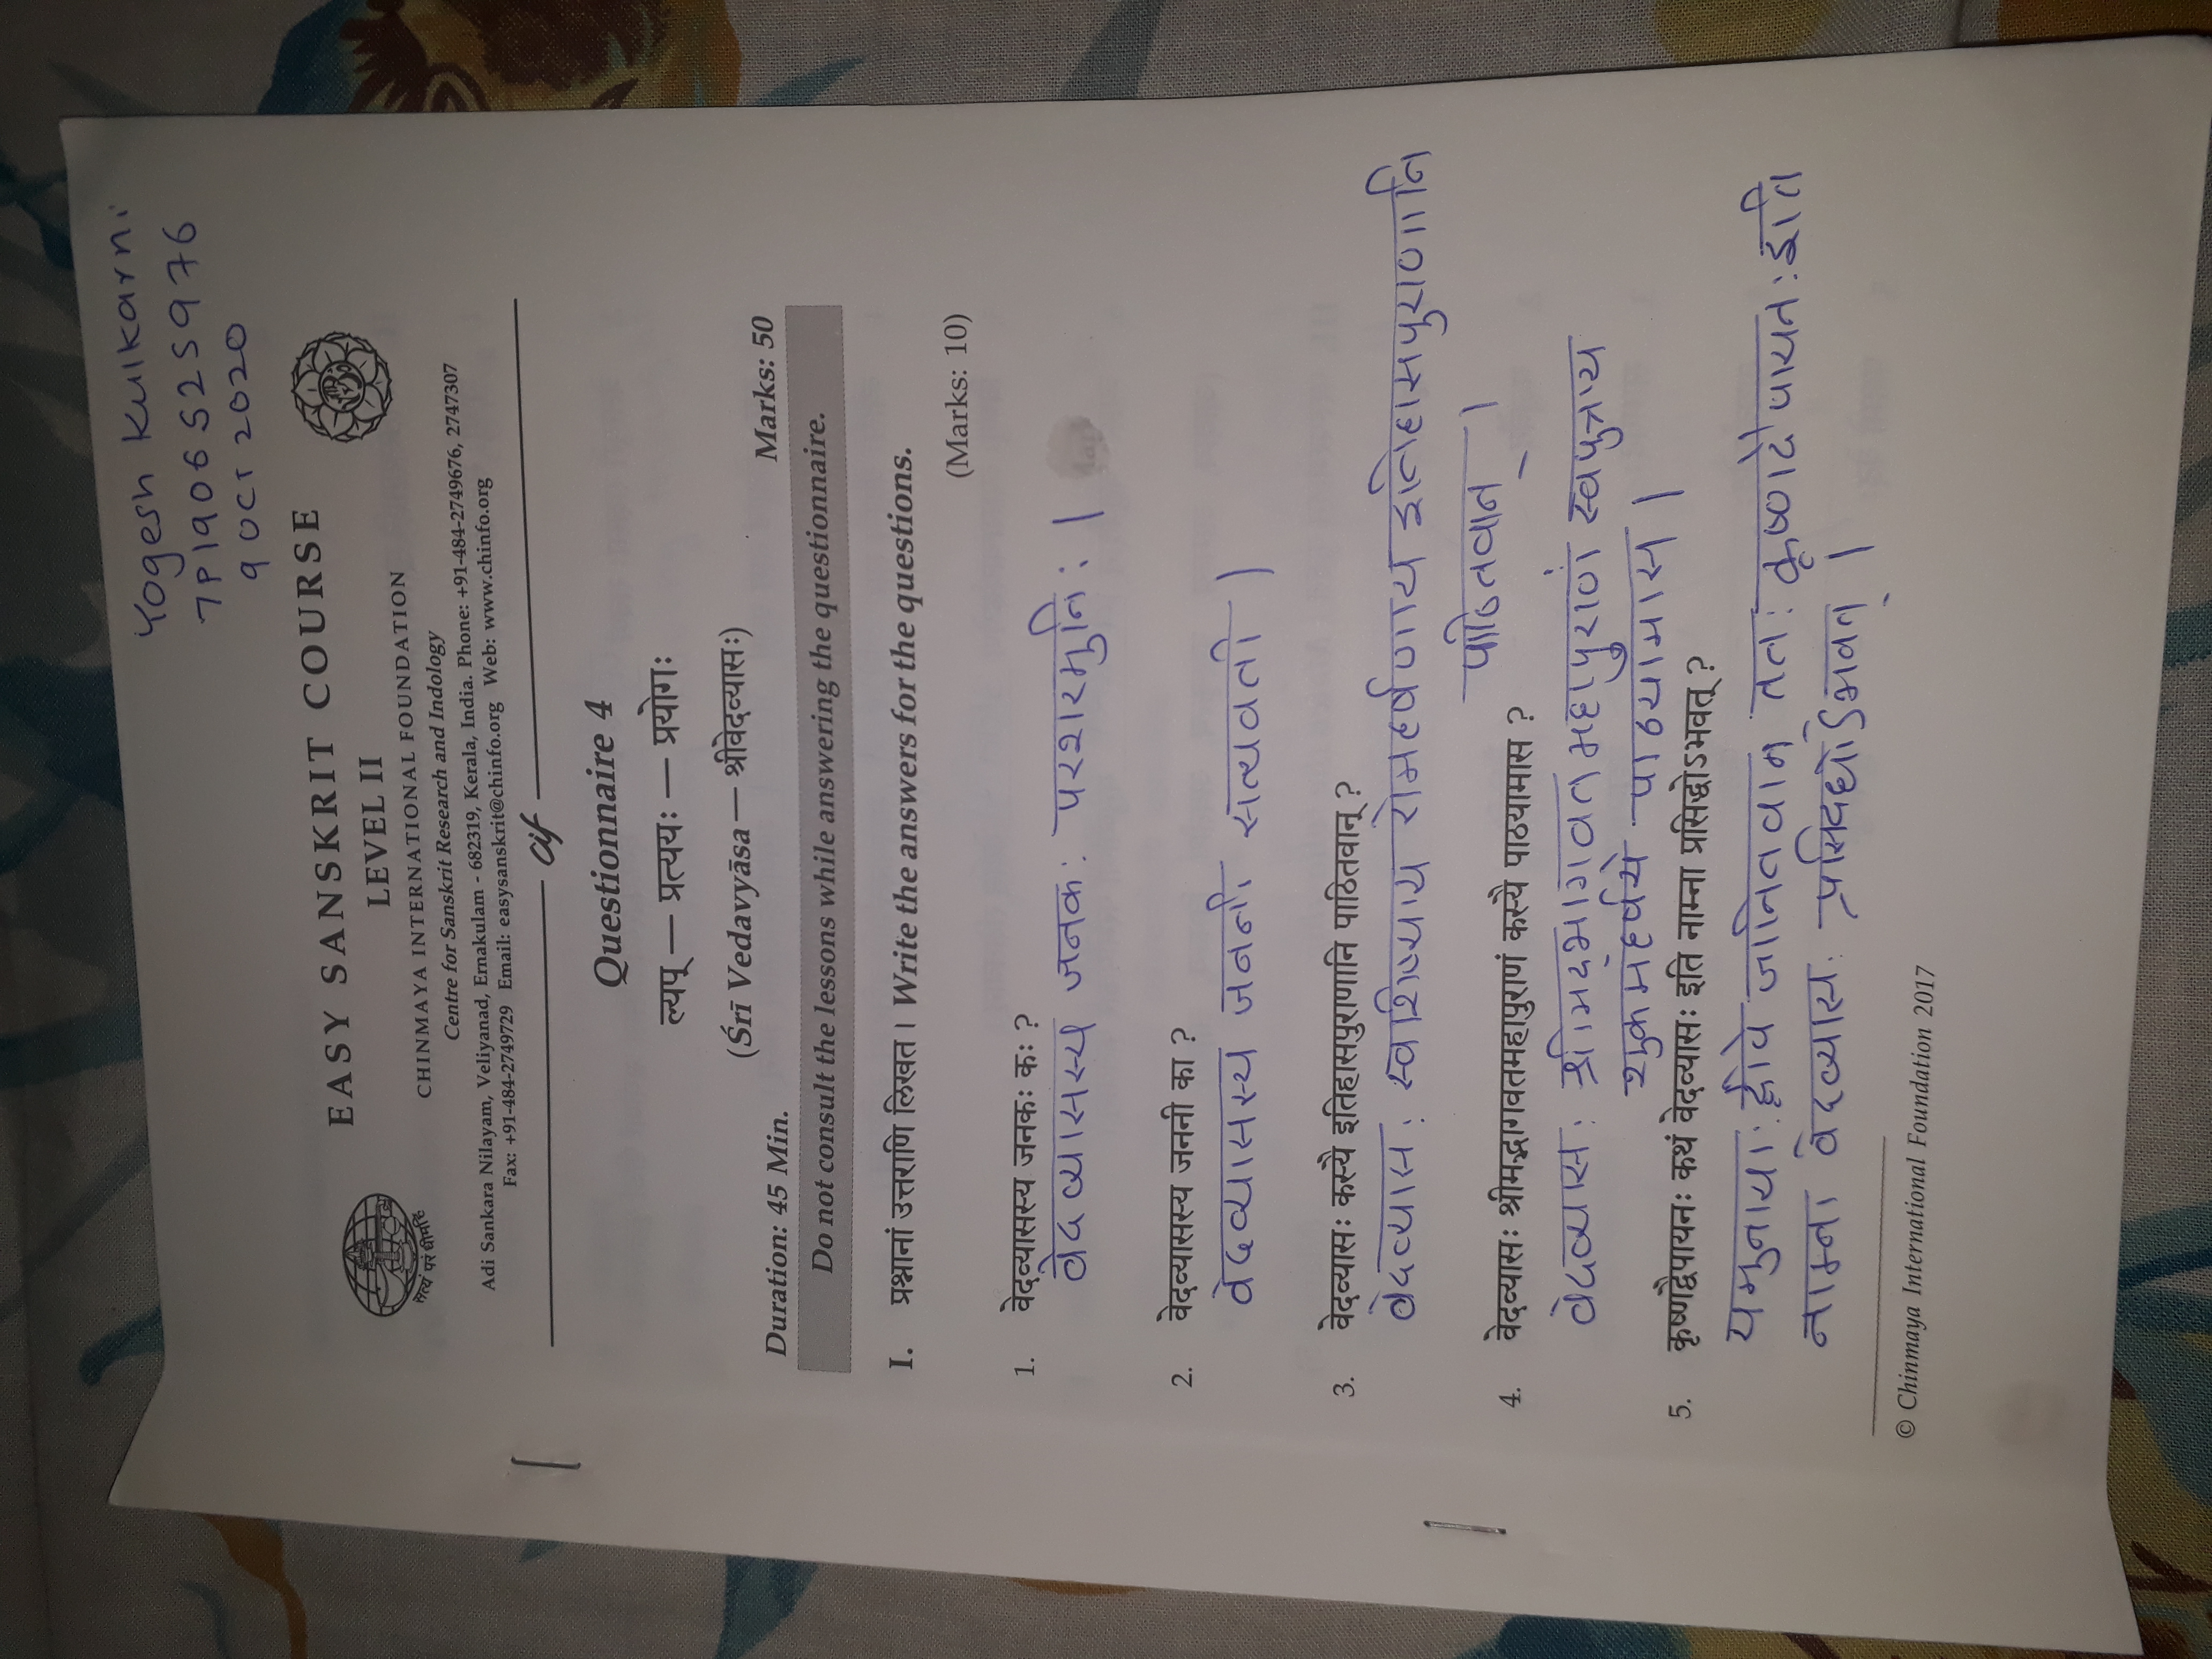 Yogesh Kulkarni
7P1906525976
9 OCT 2020
EASY SANSKRIT COURSE
LEVEL II
CHINMAYA INTERNATIONAL FOUNDATION
Centre for Sanskrit Research and Indology
Adi Sankara Nilayam, Veliyanad, Ernakulam - 682319, Kerala, India. Phone: +91-484-2749676, 2747307
Fax: +91-484-2749729 Email: easysanskrit@chinfo.org Web: www.chinfo.org
सत्यं परं धीमहि
cif
Questionnaire 4
ल्यप् — प्रत्ययः — प्रयोगः
(Śrī Vedavyāsa — श्रीवेदव्यासः)
Duration: 45 Min. Marks: 50
Do not consult the lessons while answering the questionnaire.
I. प्रश्नानां उत्तराणि लिखत । Write the answers for the questions.
(Marks: 10)
1. वेदव्यासस्य जनकः कः ?
वेदव्यासस्य जनकः परशरमुनिः ।
2. वेदव्यासस्य जननी का ?
वेदव्यासस्य जननी सत्यवती ।
3. वेदव्यासः कस्यै इतिहासपुराणानि पाठितवान् ?
वेदव्यासः स्वशिष्याय रोमहर्षणाय इतिहासपुराणानि
पाठितवान् ।
4. वेदव्यासः श्रीमद्भागवतमहापुराणं कस्यै पाठयामास ?
वेदव्यासः श्रीमद्भागवतमहापुराणं स्वपुत्राय
शुकमहर्षये पाठयामास ।
5. कृष्णद्वैपायनः कथं वेदव्यासः इति नाम्ना प्रसिद्धोऽभवत् ?
यमुनायाः द्वीपे जानितवान् ततः कृष्णदैपायनः इति
नाम्ना वेदव्यासः प्रसिदधोऽभवत् ।
© Chinmaya International Foundation 2017